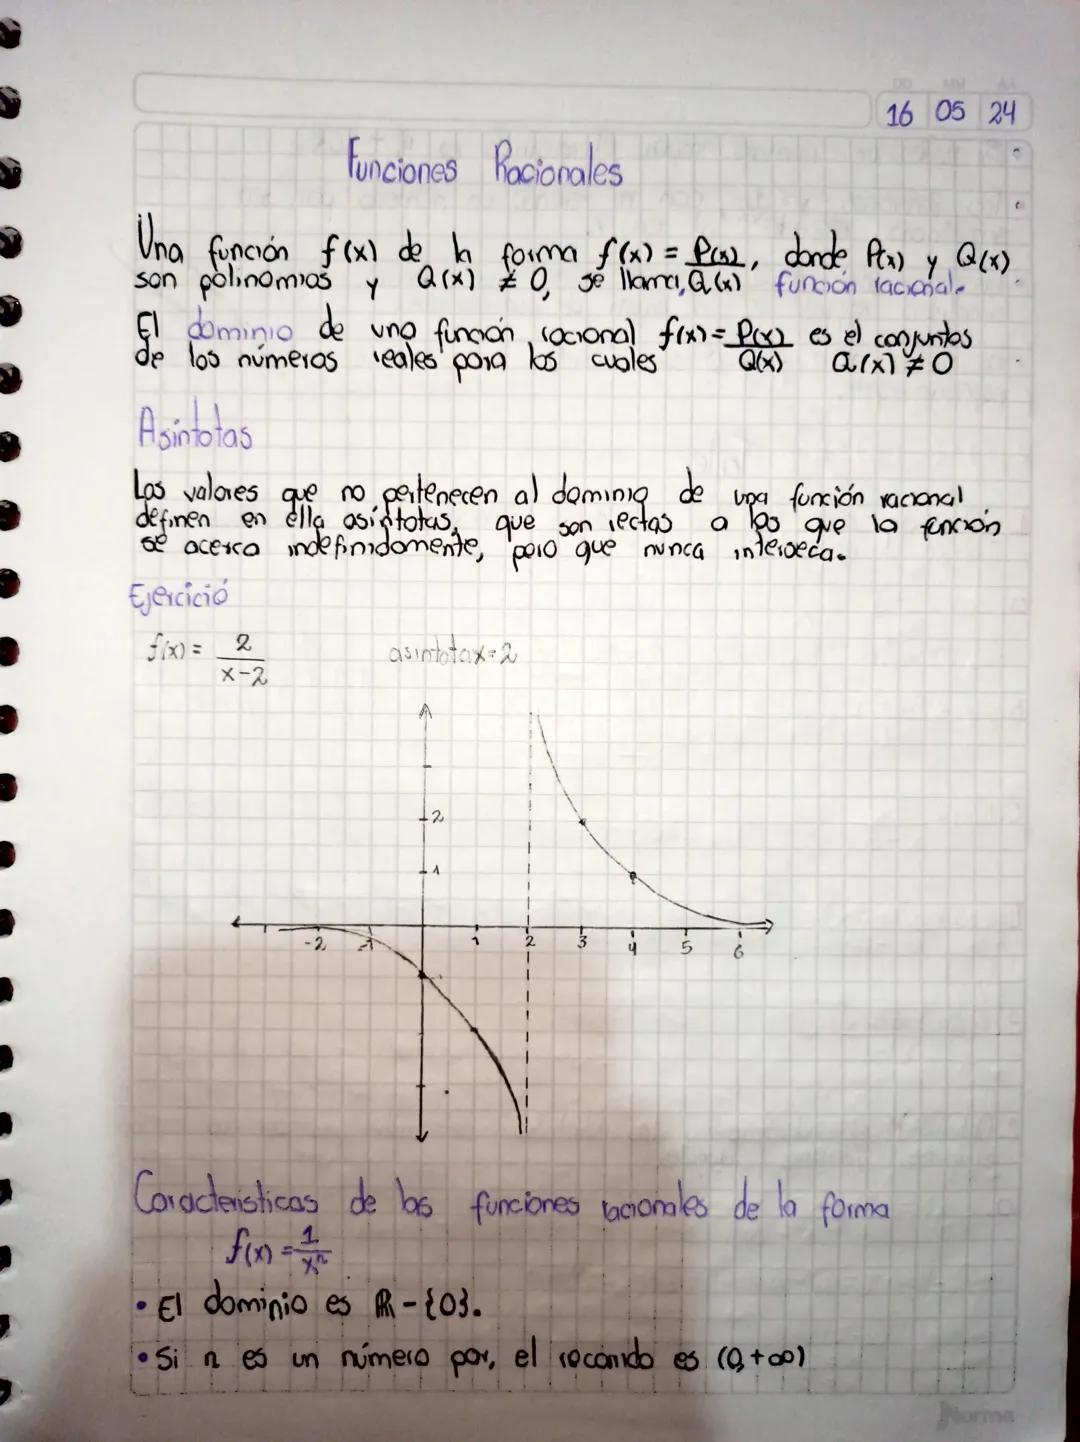 DD MM AA
16 05 24
Funciones Racionales
Una función f(x) de la forma f(x) = P(x)/Q(x), donde P(x) y Q(x)
son polinomios y Q(x) ≠ 0, se llama, función racional.
El dominio de una función racional f(x) = P(x)/Q(x) es el conjuntos
de los números reales para los cuales Q(x) ≠ 0
Asíntotas
Los valores que no pertenecen al dominio de una función racional
definen en ella asíntotas, que son rectas a las que la función
se acerca indefinidamente, pero que nunca interseca.
Ejercició
f(x) = 2/(x-2) asintota x=2
2
1
-2 -1 1 2 3 4 5 6
Caracteristicas de las funciones racionales de la forma
f(x) = 1/xⁿ
• El dominio es ℝ - {0}.
• Si n es un número par, el recorrido es (0,+∞)
Norma